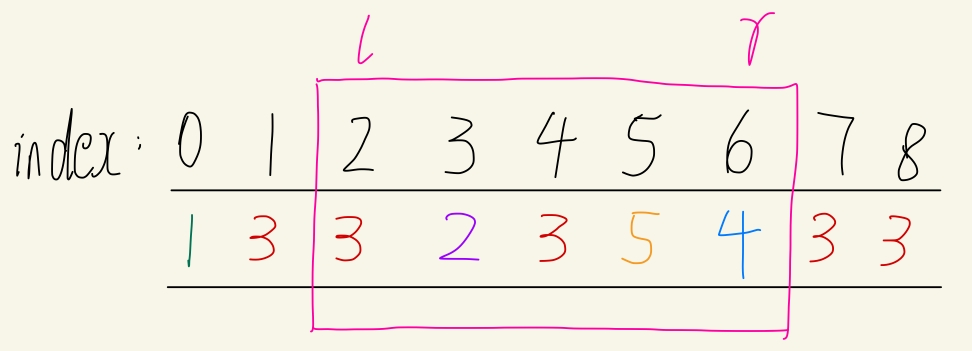 l r
index: 0 1 2 3 4 5 6 7 8
1 3 3 2 3 5 4 3 3